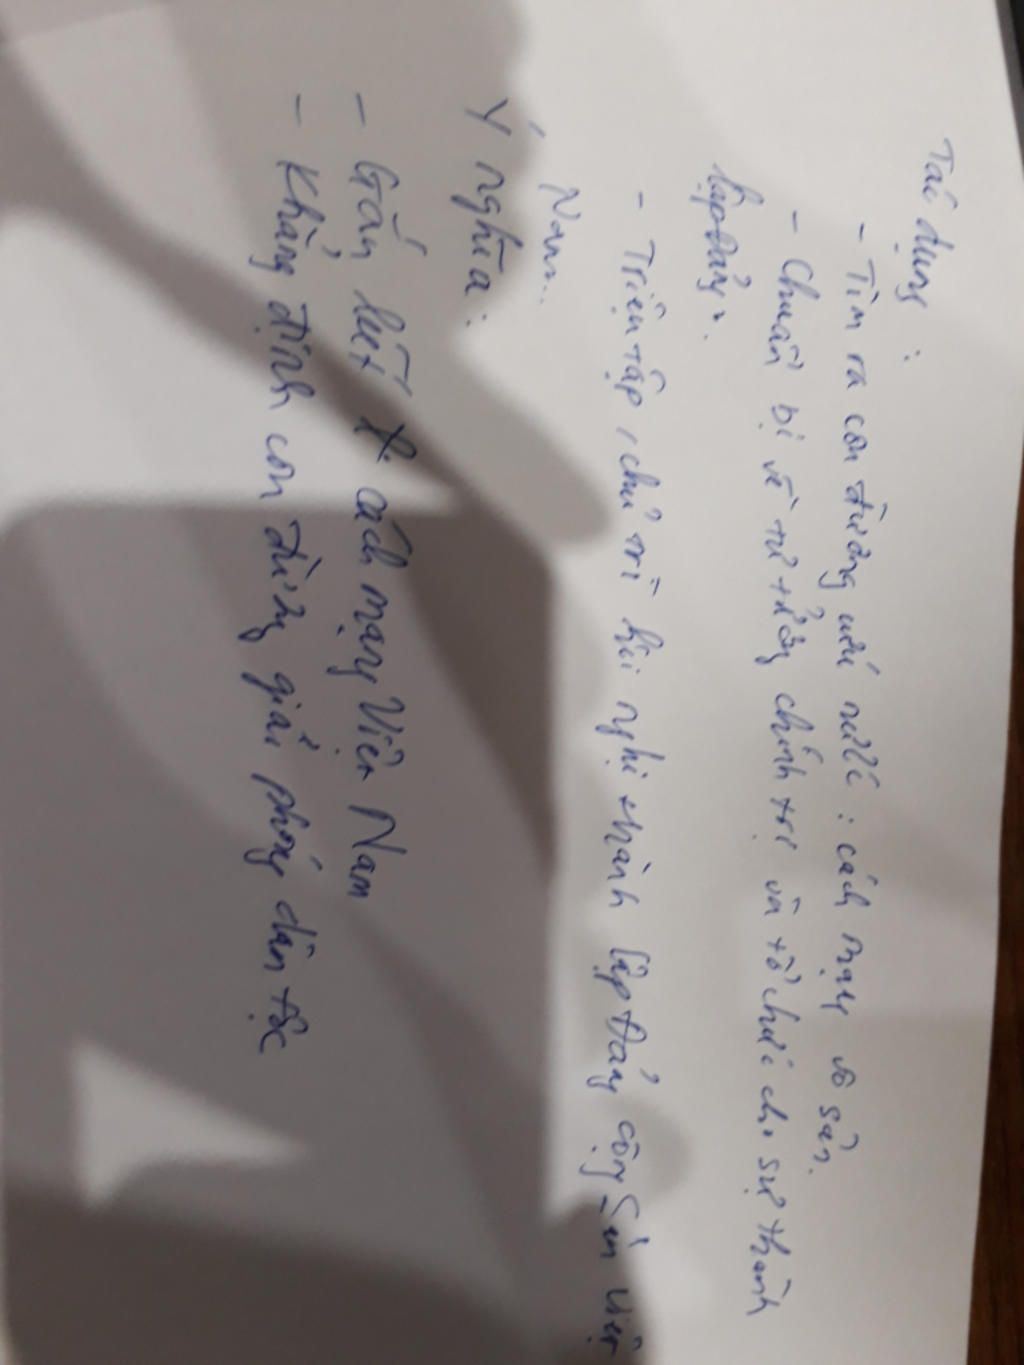 Tác dụng :
- Tìm ra con đường cứu nước : cách mạng vô sản.
- Chuẩn bị về tư tưởng chính trị và tổ chức cho sự thành
lập Đảng.
- Triệu tập, chủ trì hội nghị thành lập Đảng cộng Sản Việt
Nam..
Ý nghĩa :
- Gắn kết cách mạng Việt Nam
- Khẳng định con đường giải phóng dân tộc